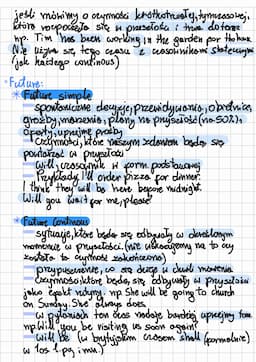 jeśli mówimy o czynności krótkotrwałej, tymczasowej,
która rozpoczęła się w przeszłości i trwa do teraz
np. Tim has been working in the garden for the hour.
Nie używa się tego czasu z czasownikami statecznymi
(jak każdego continous)
• Future:
* Future simple
– spontaniczne decyzje, przewidywania, obietnice,
groźby, marzenia, plany na przyszłość (na 50%),
oferty, uprzejme prośby
– czynności, które naszym zdaniem będą się
powtarzać w przyszłości
– Will + czasownik w formie podstawowej
– Przykłady: I'll order pizza for dinner.
I think they will be here before midnight.
Will you wait for me, please?
* Future continous
– sytuacje, które będą się odbywały w określonym
momencie w przyszłości. (nie wskazujemy na to czy
została ta czynność zakończona)
– przypuszczenie, co się dzieje w chwili mówienia
– czynności, które będą się odbywały w przyszłości
jako efekt rutyny. np She will be going to church
on Sunday. She always does.
– w pytaniach ten czas nadaje bardziej uprzejmy ton
np. Will you be visiting us soon again?
– Will be (w brytyjskim czasem shall (formalnie)
w 1os. l. poj i mn.)